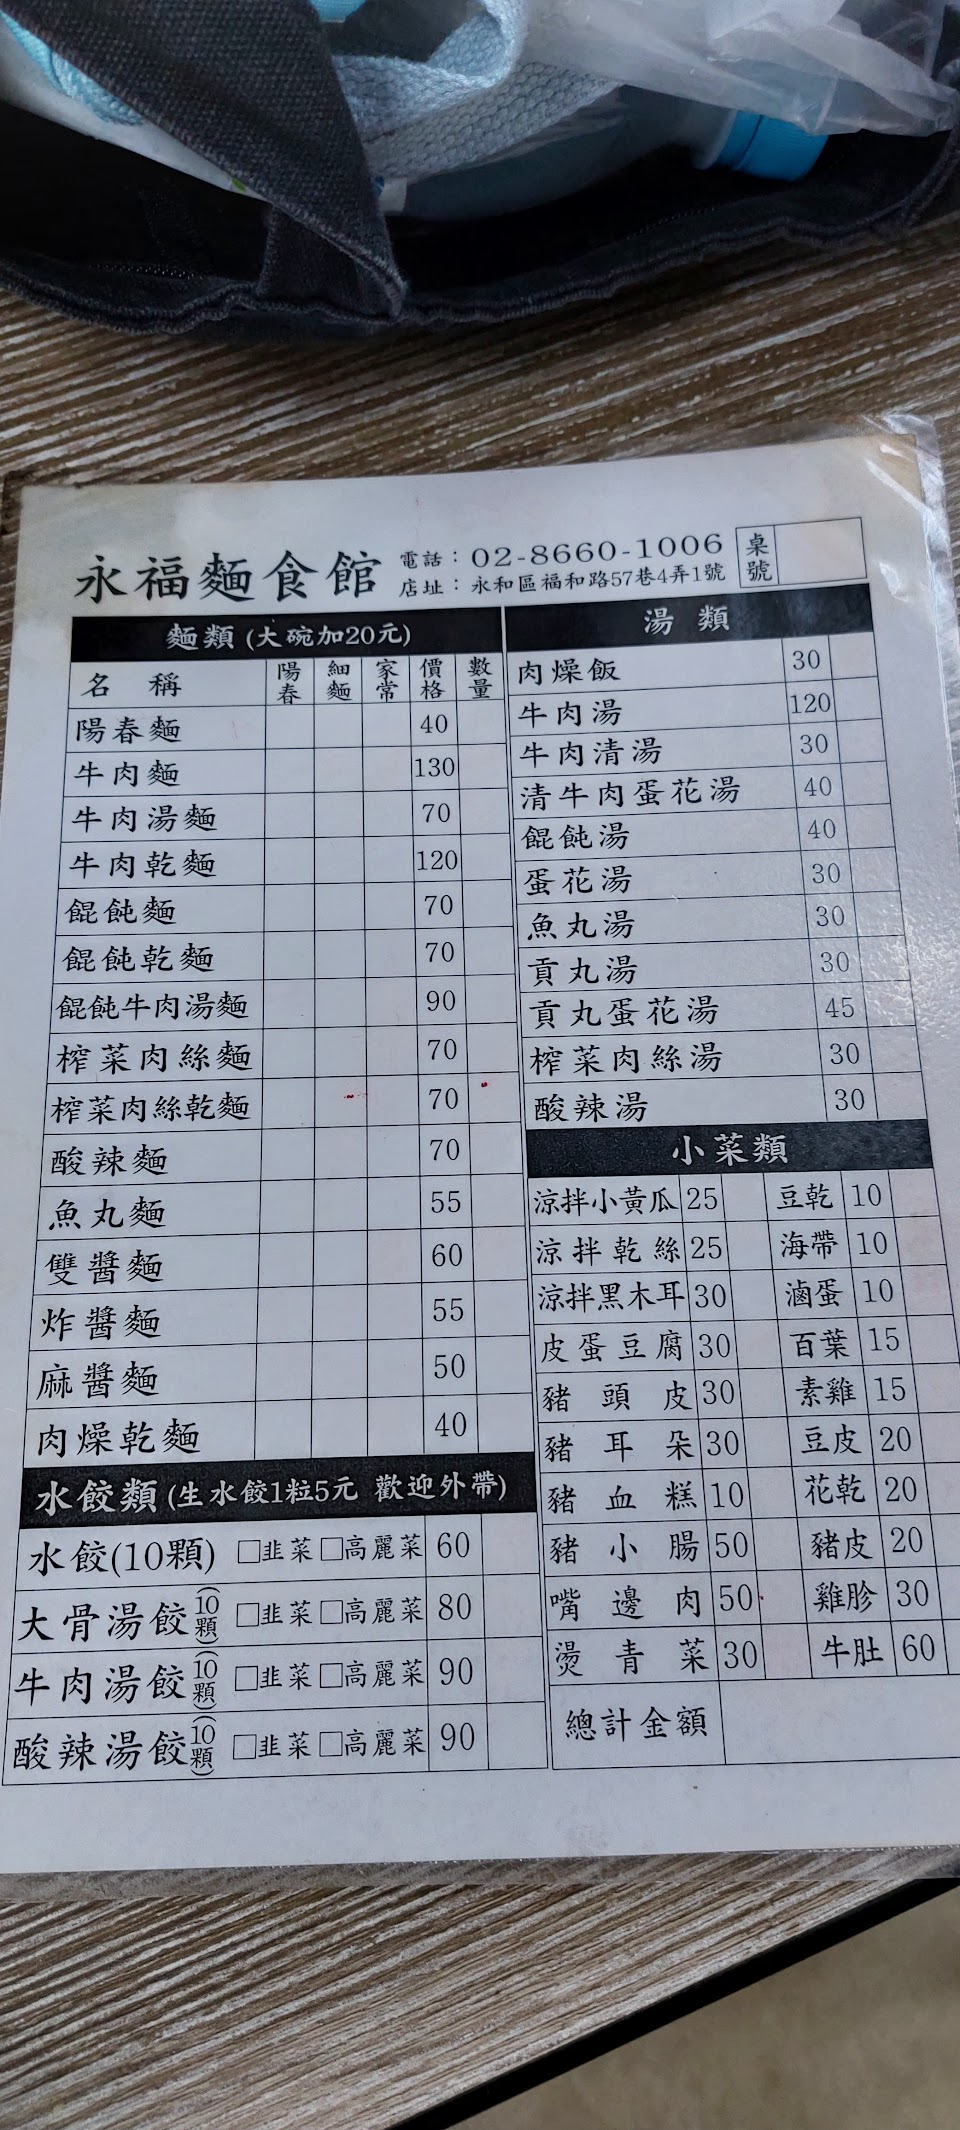 永福麵食館
電話：02-8660-1006
店址：永和區福和路57巷4弄1號
桌號
麵類 (大碗加20元)
名稱 陽春 細麵 家常 價格 數量
陽春麵 40
牛肉麵 130
牛肉湯麵 70
牛肉乾麵 120
餛飩麵 70
餛飩乾麵 70
餛飩牛肉湯麵 90
榨菜肉絲麵 70
榨菜肉絲乾麵 70
酸辣麵 70
魚丸麵 55
雙醬麵 60
炸醬麵 55
麻醬麵 50
肉燥乾麵 40
水餃類 (生水餃1粒5元 歡迎外帶)
水餃(10顆) □韭菜□高麗菜 60
大骨湯餃(10顆) □韭菜□高麗菜 80
牛肉湯餃(10顆) □韭菜□高麗菜 90
酸辣湯餃(10顆) □韭菜□高麗菜 90
湯類
肉燥飯 30
牛肉湯 120
牛肉清湯 30
清牛肉蛋花湯 40
餛飩湯 40
蛋花湯 30
魚丸湯 30
貢丸湯 30
貢丸蛋花湯 45
榨菜肉絲湯 30
酸辣湯 30
小菜類
涼拌小黃瓜 25 豆乾 10
涼拌乾絲 25 海帶 10
涼拌黑木耳 30 滷蛋 10
皮蛋豆腐 30 百葉 15
豬頭皮 30 素雞 15
豬耳朵 30 豆皮 20
豬血糕 10 花乾 20
豬小腸 50 豬皮 20
嘴邊肉 50 雞胗 30
燙青菜 30 牛肚 60
總計金額